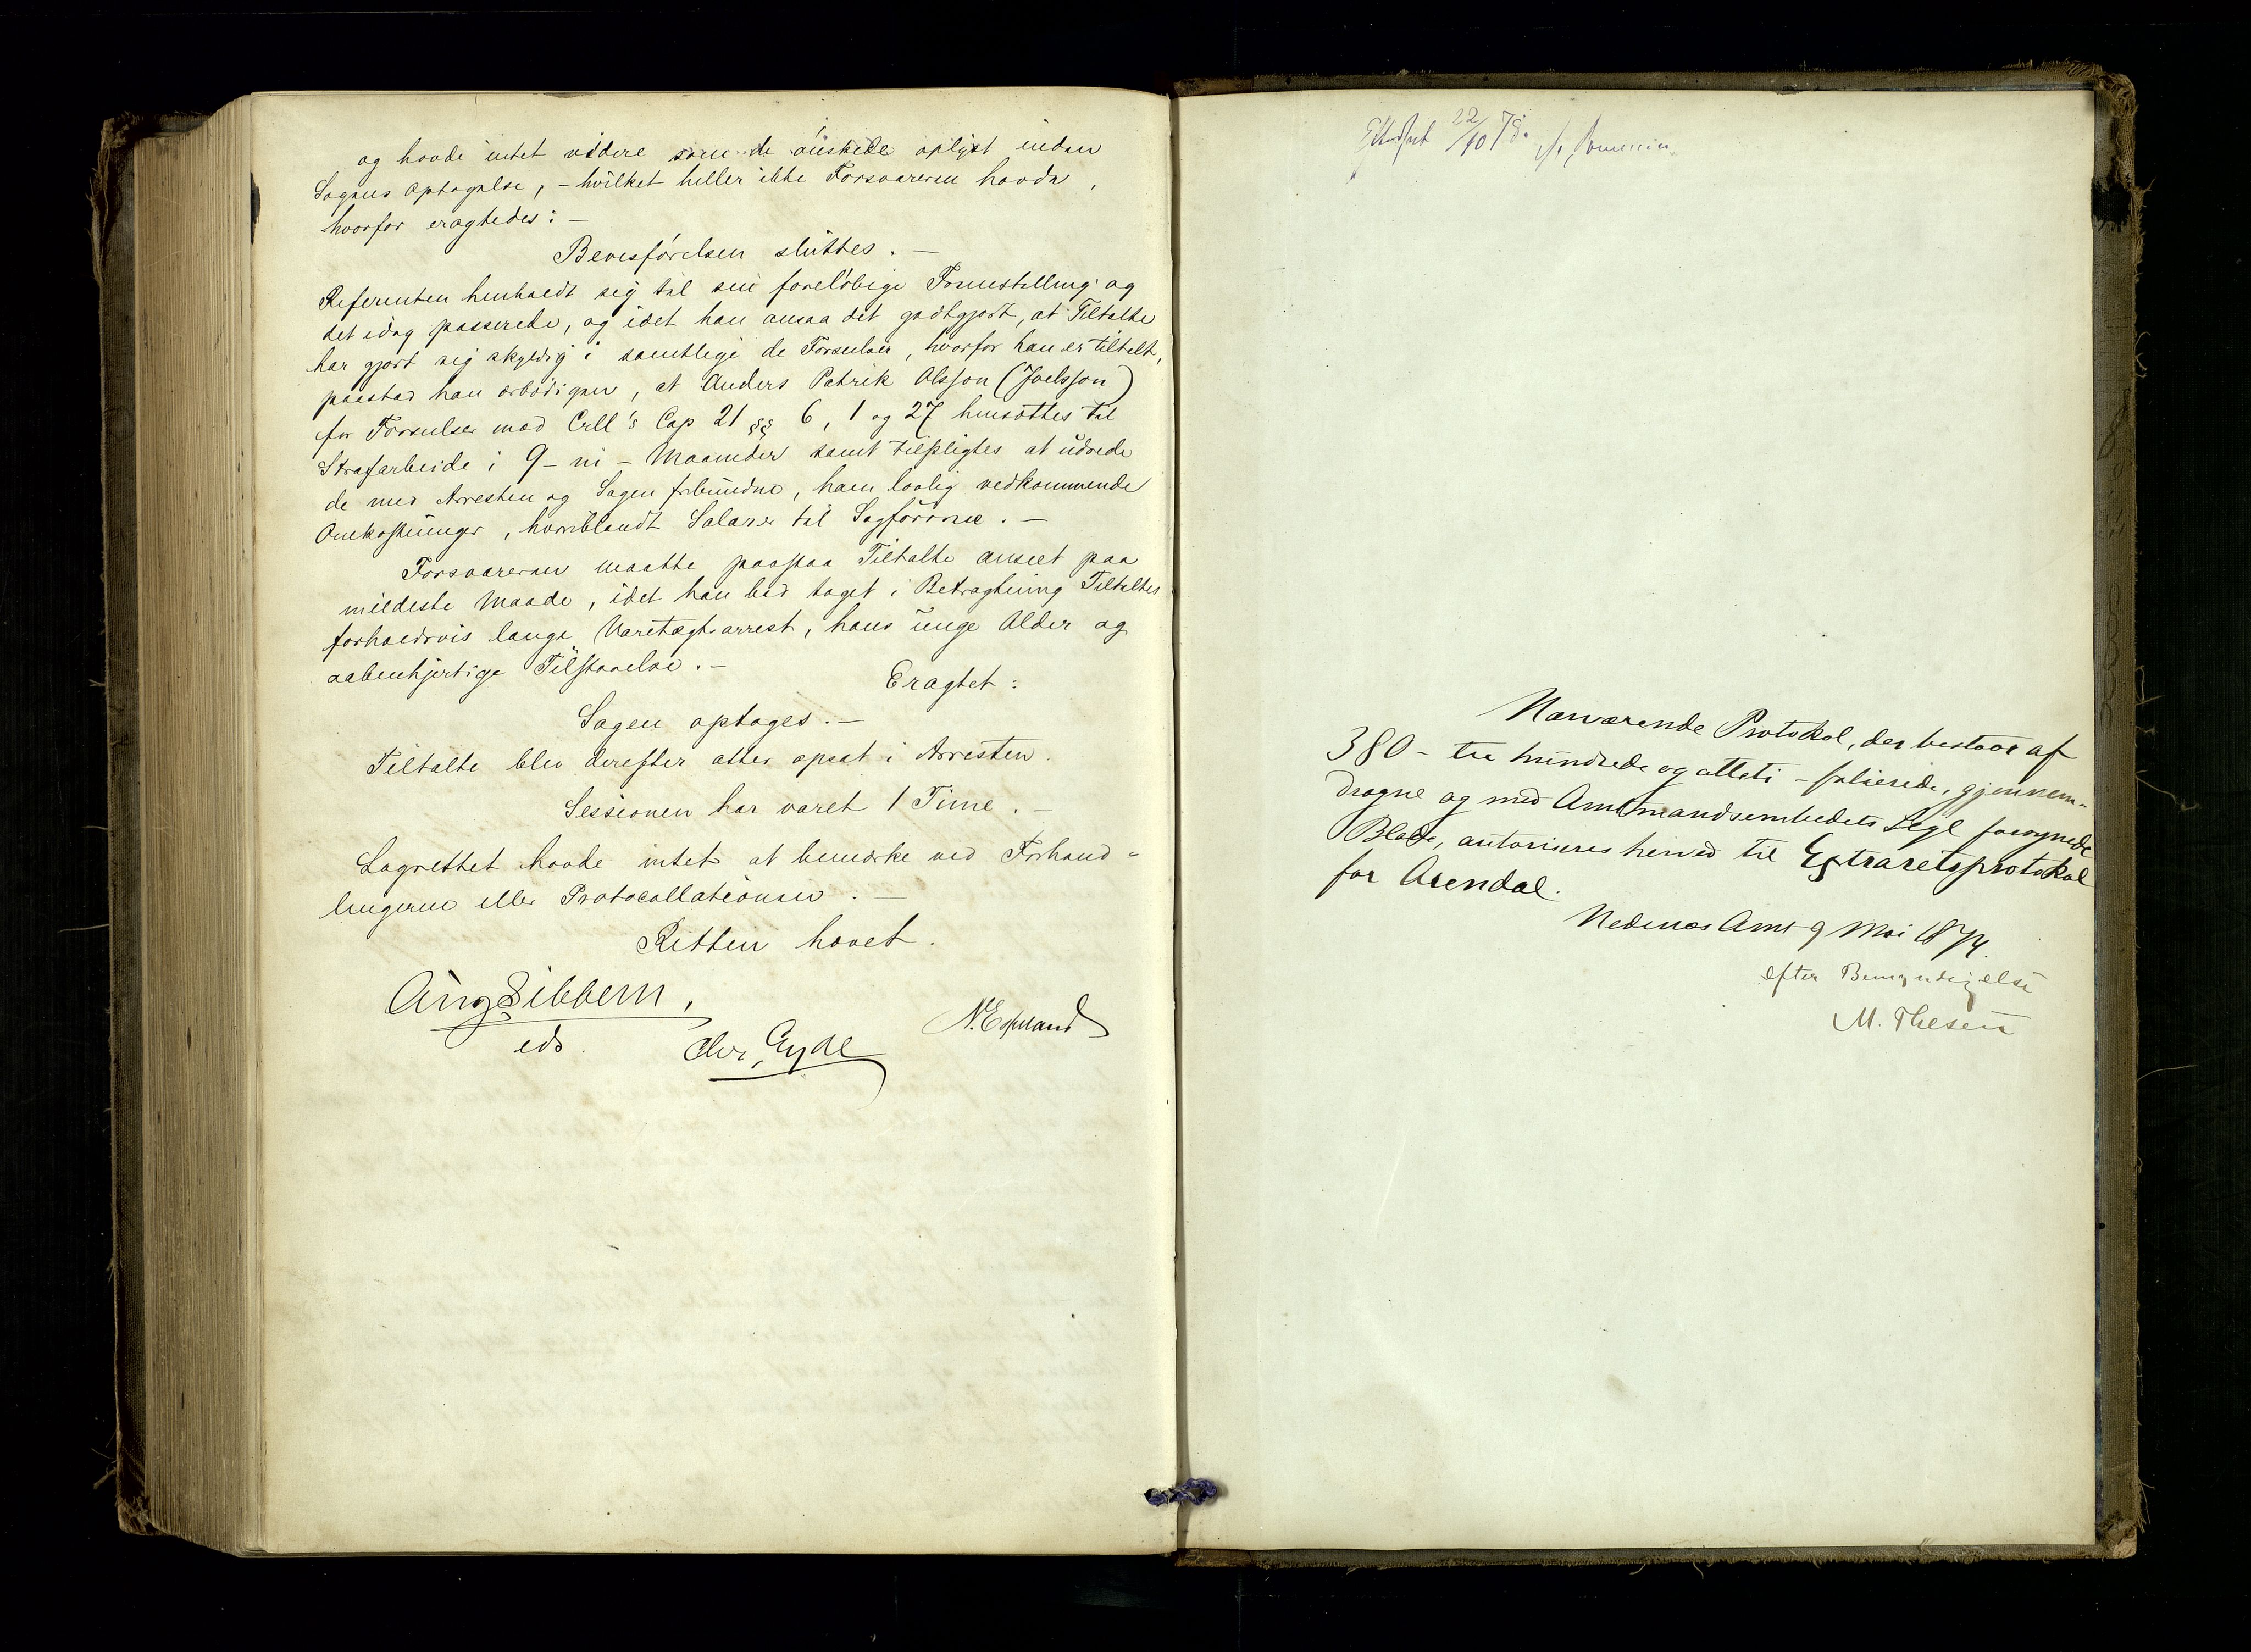 og havde intet videre som de ønskede oplyst inden
Sagens Optagelse, – hvilket heller ikke Forsvareren havde,
hvorfor eragtedes: –
Bevisførelsen sluttes. –
Referenten henholdt sig til sin foreløbige Fremstilling og
det idag passerede, og idet han ansaa det godtgjort, at Tiltalte
har gjort sig skyldig i samtlige de Forseelser, hvorfor han er tiltalt,
paastod han ærbødigen, at Anders Patrik Olsson (Joelsson)
for Forseelser mod Crll's Cap 21 §§ 6, 1 og 27 hensættes til
Strafarbeide i 9 – ni – Maaneder samt tilpligtes at udrede
de med Arresten og Sagen forbundne, ham lovlig vedkommende
Omkostninger, hvoriblandt Salarer til Sagførerne. –
Forsvareren maatte paastaa Tiltalte anseet paa
mildeste Maade, idet han bad taget i Betragtning Tiltaltes
forholdsvis lange Varetægtsarrest, hans unge Alder og
aabenhjertige Tilstaaelse. –
Eragtet:
Sagen optages. –
Tiltalte blev derefter atter opsat i Arresten.
Sessionen har varet 1 Time. –
Lagrettet havde intet at bemærke ved Forhand-
lingerne eller Protocollationen. –
Retten hævet.
Aug Sibbern,
eds.
Chr. Eyde
N. Espeland
22/10 78.
Nærværende Protokol, der bestaar af
380 – tre hundrede og otteti – folierede, gjennem-
dragne og med Amtmandsembedets Segl forsynede
Blade, autoriseres herved til Extraretsprotokol
for Arendal.
Nedenæs Amt 9 Mai 1874.
efter Bemyndigelse
M. Thesen